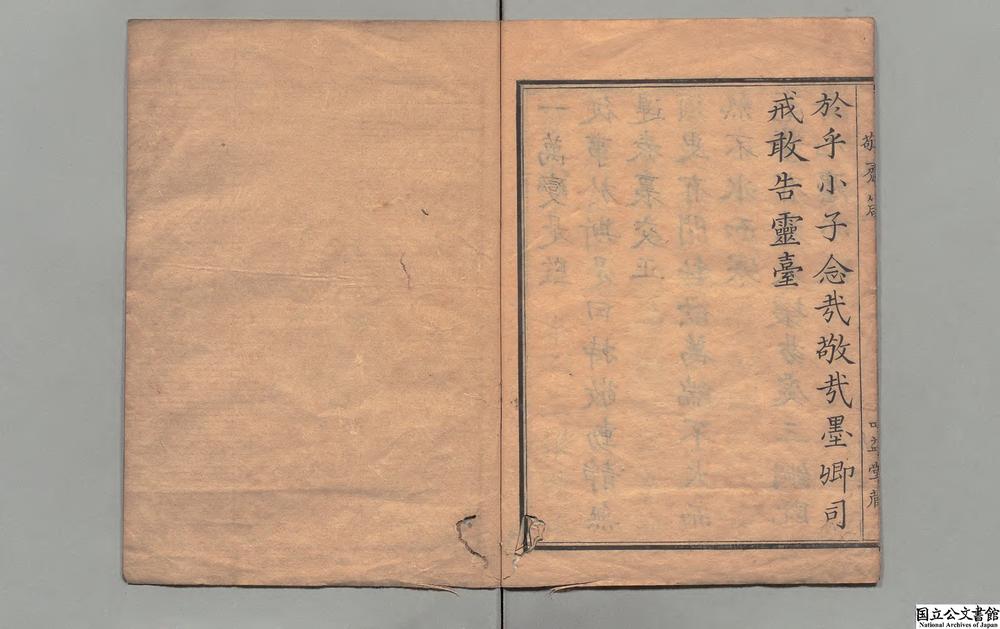 敬齋箴
於乎小子念哉敬哉墨卿司
戒敢告靈臺
国立公文書館
National Archives of Japan